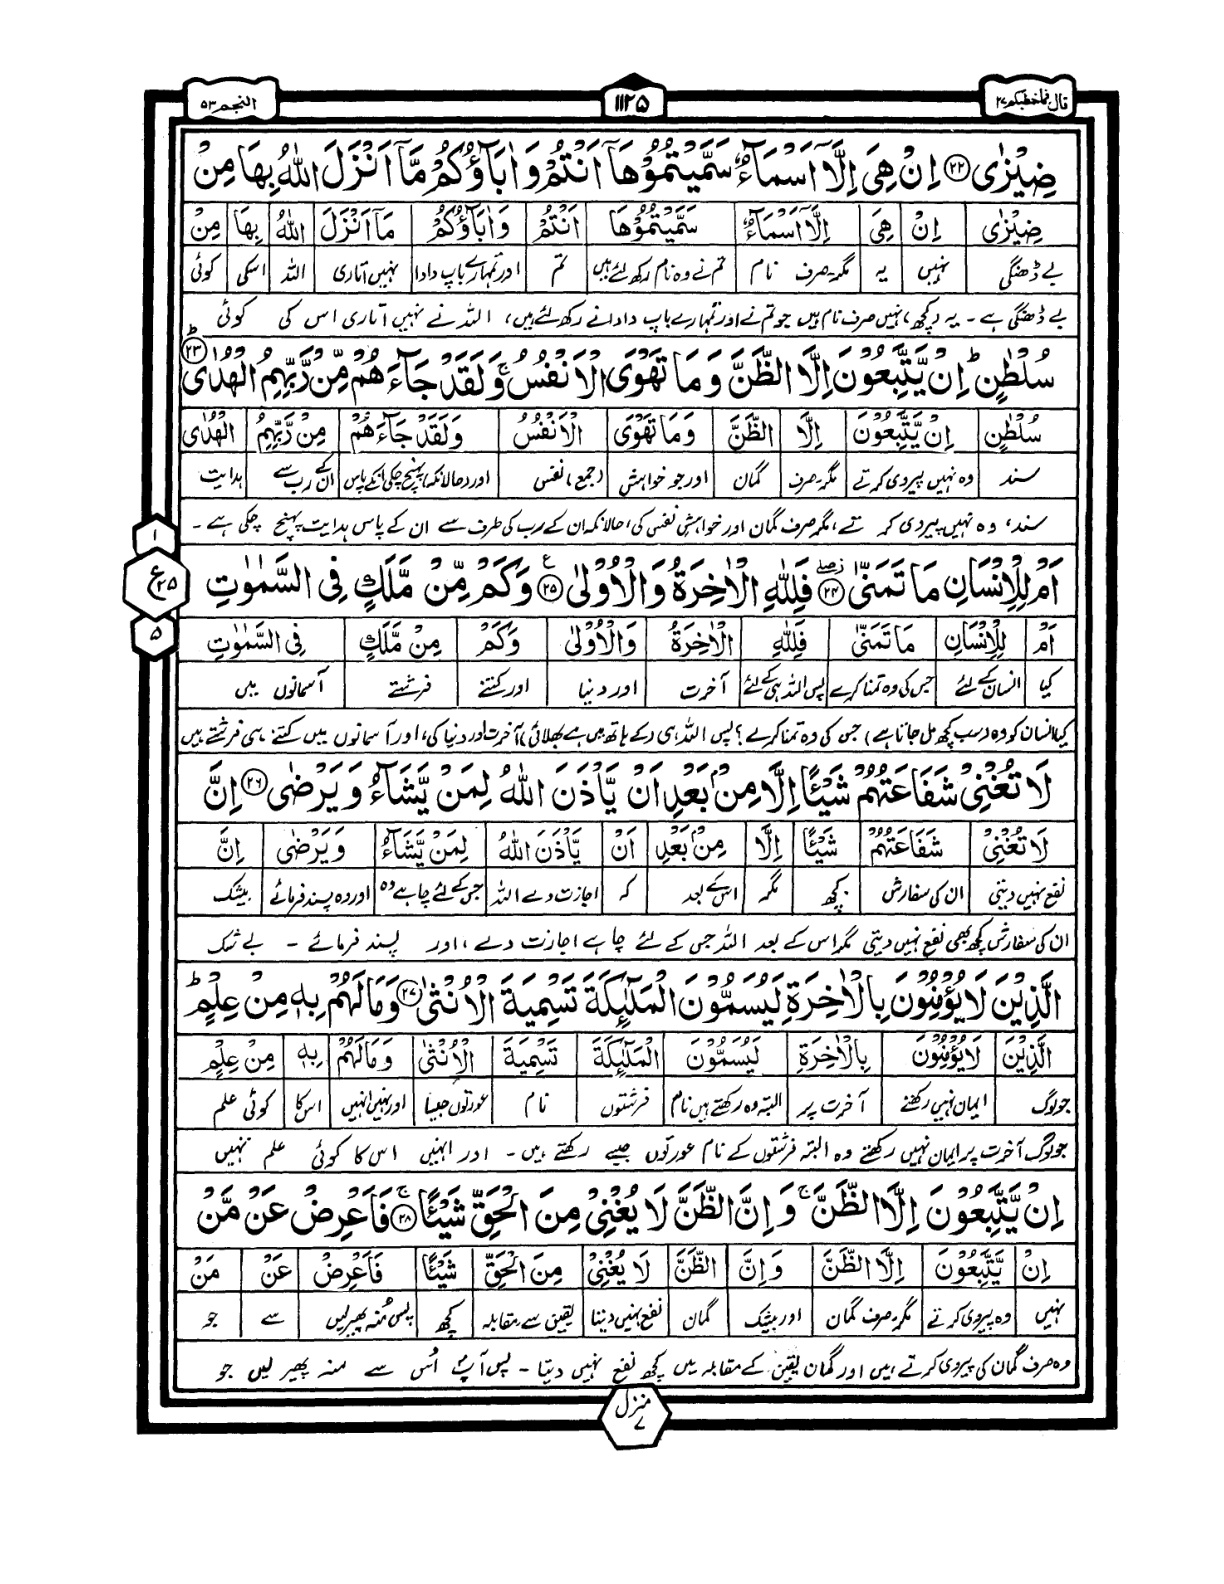 قال فما خطبكم ۲۷
۱۱۲۵
النجم ۵۳
ضِيْزٰى ۝۲۲ اِنْ هِىَ اِلَّآ اَسْمَآءٌ سَمَّيْتُمُوْهَآ اَنْتُمْ وَاٰبَآؤُكُمْ مَّآ اَنْزَلَ اللّٰهُ بِهَا مِنْ
ضِيْزٰى | اِنْ | هِىَ | اِلَّآ اَسْمَآءٌ | سَمَّيْتُمُوْهَا | اَنْتُمْ | وَاٰبَآؤُكُمْ | مَآ اَنْزَلَ | اللّٰهُ | بِهَا | مِنْ
بے ڈھنگی | نہیں | یہ | مگر۔صرف نام | تم نے وہ نام رکھ لئے ہیں | تم | اور تمہارے باپ دادا | نہیں اتاری | اللہ | اسکی | کوئی
بے ڈھنگی ہے۔ یہ (کچھ) نہیں صرف نام ہیں جو تم نے اور تمہارے باپ دادا نے رکھ لئے ہیں، اللہ نے نہیں اتاری اس کی کوئی
سُلْطٰنٍ ؕ اِنْ يَّتَّبِعُوْنَ اِلَّا الظَّنَّ وَمَا تَهْوَى الْاَنْفُسُ ۚ وَلَقَدْ جَآءَهُمْ مِّنْ رَّبِّهِمُ الْهُدٰى ؕ ۝۲۳
سُلْطٰنٍ | اِنْ يَّتَّبِعُوْنَ | اِلَّا | الظَّنَّ | وَمَا تَهْوَى | الْاَنْفُسُ | وَلَقَدْ جَآءَهُمْ | مِنْ رَّبِّهِمُ | الْهُدٰى
سند | وہ نہیں پیروی کرتے | مگر۔صرف | گمان | اور جو خواہش | (جمع) نفس | اور حالانکہ پہنچ چکی انکے پاس | ان کے رب سے | ہدایت
سند، وہ نہیں پیروی کرتے، مگر صرف گمان اور خواہشِ نفس کی، حالانکہ ان کے پاس ہدایت ان کے رب کی طرف سے پہنچ چکی ہے۔
اَمْ لِلْاِنْسَانِ مَا تَمَنّٰى ۝۲۴ فَلِلّٰهِ الْاٰخِرَةُ وَالْاُوْلٰى ۝۲۵ وَكَمْ مِّنْ مَّلَكٍ فِى السَّمٰوٰتِ
۱
ع ۲۵
۵
اَمْ | لِلْاِنْسَانِ | مَا تَمَنّٰى | فَلِلّٰهِ | الْاٰخِرَةُ | وَالْاُوْلٰى | وَكَمْ | مِنْ مَّلَكٍ | فِى السَّمٰوٰتِ
کیا | انسان کے لئے | جس کی وہ تمنا کرے | پس اللہ ہی کے لئے | آخرت | اور دنیا | اور کتنے | فرشتے | آسمانوں میں
کیا انسان کو وہ (سب کچھ مل جاتا ہے) جس کی وہ تمنا کرے؟ پس اللہ ہی کے ہاتھ میں ہے بھلائی آخرت اور دنیا کی، اور آسمانوں میں کتنے ہی فرشتے ہیں
لَا تُغْنِىْ شَفَاعَتُهُمْ شَيْـًٔا اِلَّا مِنْۢ بَعْدِ اَنْ يَّاْذَنَ اللّٰهُ لِمَنْ يَّشَآءُ وَيَرْضٰى ۝۲۶ اِنَّ
لَا تُغْنِىْ | شَفَاعَتُهُمْ | شَيْـًٔا | اِلَّا | مِنْۢ بَعْدِ | اَنْ | يَّاْذَنَ اللّٰهُ | لِمَنْ يَّشَآءُ | وَيَرْضٰى | اِنَّ
نفع نہیں دیتی | ان کی سفارش | کچھ | مگر | اس کے بعد | کہ | اجازت دے اللہ | جس کے لئے چاہے وہ | اور وہ پسند فرمائے | بیشک
ان کی سفارش کچھ بھی نفع نہیں دیتی مگر اس کے بعد اللہ جس کے لئے چاہے اجازت دے، اور پسند فرمائے۔ بے شک
الَّذِيْنَ لَا يُؤْمِنُوْنَ بِالْاٰخِرَةِ لَيُسَمُّوْنَ الْمَلٰٓئِكَةَ تَسْمِيَةَ الْاُنْثٰى ۝۲۷ وَمَا لَهُمْ بِهٖ مِنْ عِلْمٍ ؕ
الَّذِيْنَ | لَا يُؤْمِنُوْنَ | بِالْاٰخِرَةِ | لَيُسَمُّوْنَ | الْمَلٰٓئِكَةَ | تَسْمِيَةَ | الْاُنْثٰى | وَمَا لَهُمْ | بِهٖ | مِنْ عِلْمٍ
جو لوگ | ایمان نہیں رکھتے | آخرت پر | البتہ وہ رکھتے ہیں نام | فرشتوں | نام | عورتوں جیسا | اور نہیں انہیں | اس کا | کوئی علم
جو لوگ آخرت پر ایمان نہیں رکھتے وہ البتہ فرشتوں کے نام عورتوں جیسے رکھتے ہیں۔ اور انہیں اس کا کوئی علم نہیں
اِنْ يَّتَّبِعُوْنَ اِلَّا الظَّنَّ ۚ وَاِنَّ الظَّنَّ لَا يُغْنِىْ مِنَ الْحَقِّ شَيْـًٔا ۚ ۝۲۸ فَاَعْرِضْ عَنْ مَّنْ
اِنْ | يَّتَّبِعُوْنَ | اِلَّا الظَّنَّ | وَاِنَّ | الظَّنَّ | لَا يُغْنِىْ | مِنَ الْحَقِّ | شَيْـًٔا | فَاَعْرِضْ | عَنْ | مَنْ
نہیں | وہ پیروی کرتے | مگر۔صرف گمان | اور بیشک | گمان | نفع نہیں دیتا | یقین سے مقابلہ | کچھ | پس منہ پھیر لیں | سے | جو
وہ صرف گمان کی پیروی کرتے ہیں اور گمان یقین کے مقابلہ میں کچھ نفع نہیں دیتا۔ پس آپ اُس سے منہ پھیر لیں جو
منزل ۷